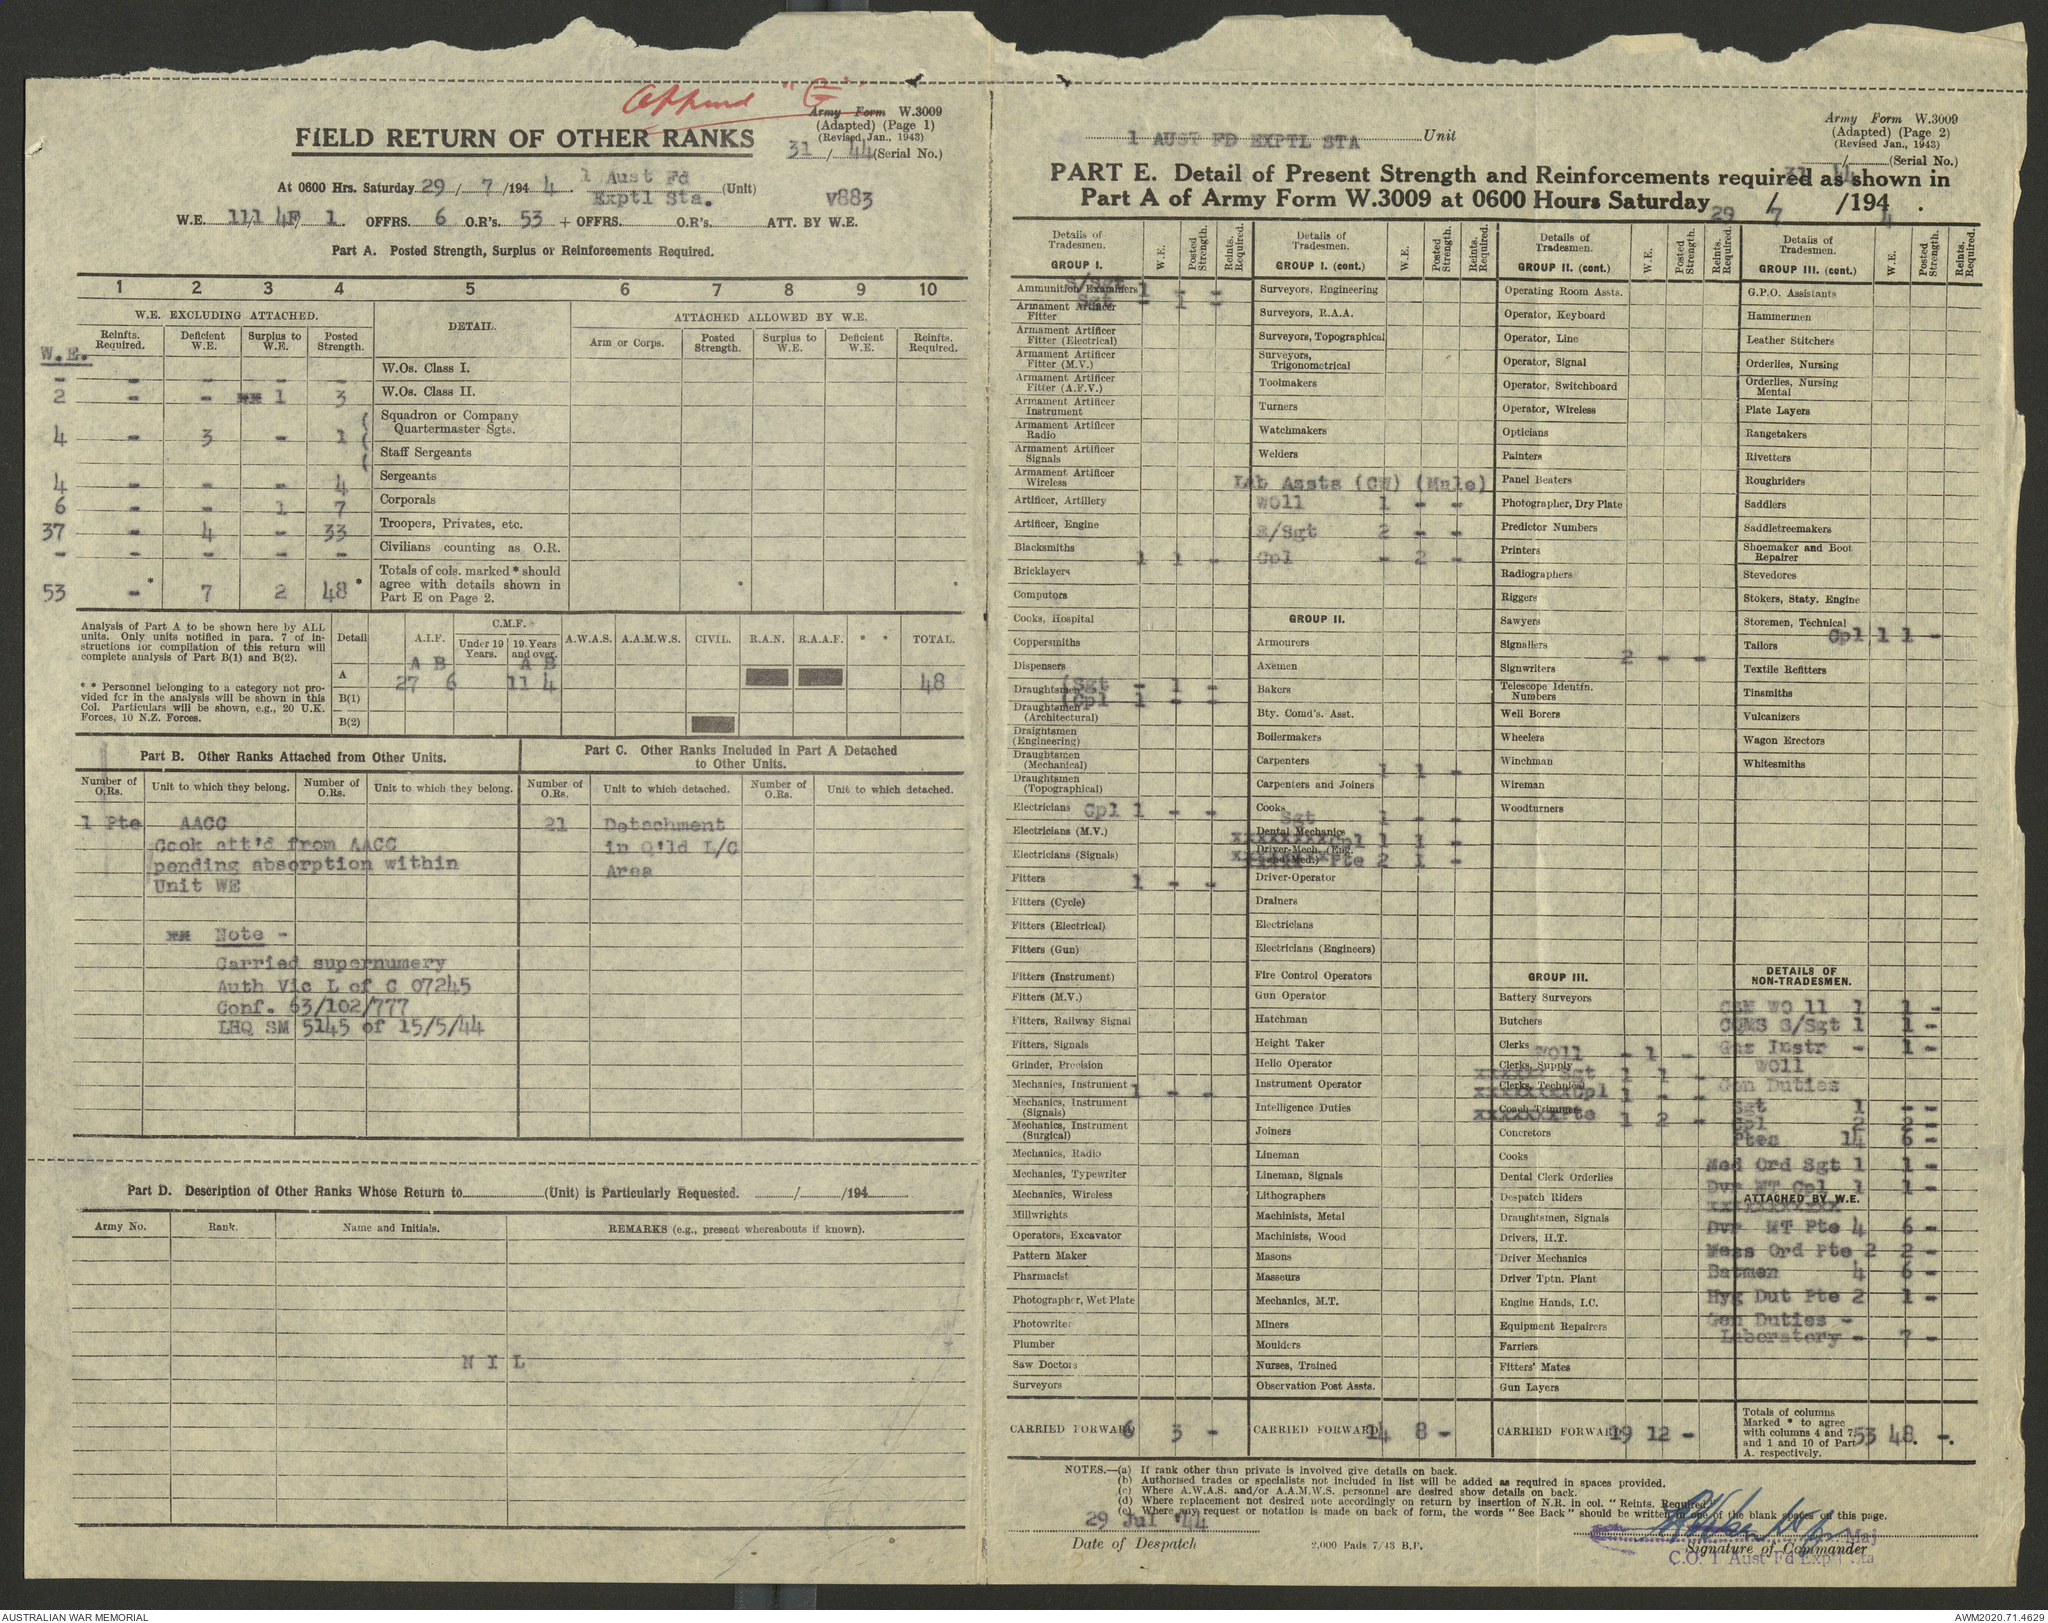 Append "G"
Army Form W.3009
(Adapted) (Page 1)
(Revised Jan., 1943)
31 / 44 (Serial No.)
FIELD RETURN OF OTHER RANKS
At 0600 Hrs. Saturday 29 / 7 /1944. 1 Aust Fd Exptl Sta. (Unit)
V883
W.E. 111 4F/ 1 OFFRS. 6 O.R's. 53 + OFFRS. O.R's. ATT. BY W.E.
Part A. Posted Strength, Surplus or Reinforcements Required.
1 2 3 4 5 6 7 8 9 10
W.E. EXCLUDING ATTACHED. DETAIL. ATTACHED ALLOWED BY W.E.
Reinfts. Required. Deficient W.E. Surplus to W.E. Posted Strength. Arm or Corps. Posted Strength. Surplus to W.E. Deficient W.E. Reinfts. Required.
W.E.
- - - - - W.Os. Class I.
2 - - ** 1 3 W.Os. Class II.
Squadron or Company Quartermaster Sgts.
4 - 3 - 1
Staff Sergeants
4 - - - 4 Sergeants
6 - - 1 7 Corporals
37 - 4 - 33 Troopers, Privates, etc.
- - - - - Civilians counting as O.R.
53 - * 7 2 48 * Totals of cols. marked * should agree with details shown in Part E on Page 2. * *
Analysis of Part A to be shown here by ALL
units. Only units notified in para. 7 of in-
structions for compilation of this return will
complete analysis of Part B(1) and B(2).
* * Personnel belonging to a category not pro-
vided for in the analysis will be shown in this
Col. Particulars will be shown, e.g., 20 U.K.
Forces, 10 N.Z. Forces.
Detail A.I.F. C.M.F. Under 19 Years. 19 Years and over. A.W.A.S. A.A.M.W.S. CIVIL. R.A.N. R.A.A.F. * * TOTAL.
A B A B
A 27 6 11 4 48
B(1)
B(2)
Part B. Other Ranks Attached from Other Units.
Part C. Other Ranks Included in Part A Detached to Other Units.
Number of O.Rs. Unit to which they belong. Number of O.Rs. Unit to which they belong. Number of O.Rs. Unit to which detached. Number of O.Rs. Unit to which detached.
1 Pte AACC 21 Detachment
Cook att'd from AACC in Q'ld L/C
pending absorption within Area
Unit WE
** Note -
Carried supernumery
Auth Vic L of C 07245
Conf. 63/102/777
LHQ SM 5145 of 15/5/44
Part D. Description of Other Ranks Whose Return to (Unit) is Particularly Requested. / /194
Army No. Rank. Name and Initials. REMARKS (e.g., present whereabouts if known).
N I L
1 AUST FD EXPTL STA Unit
Army Form W.3009
(Adapted) (Page 2)
(Revised Jan., 1943)
31 / 44 (Serial No.)
PART E. Detail of Present Strength and Reinforcements required as shown in
Part A of Army Form W.3009 at 0600 Hours Saturday 29 / 7 /194 4.
Details of Tradesmen. W.E. Posted Strength. Reints. Required.
GROUP I.
S/Sgt 1 - -
Ammunition Examiners
Sgt - 1 -
Armament Artificer Fitter
Armament Artificer Fitter (Electrical)
Armament Artificer Fitter (M.V.)
Armament Artificer Fitter (A.F.V.)
Armament Artificer Instrument
Armament Artificer Radio
Armament Artificer Signals
Armament Artificer Wireless
Artificer, Artillery
Artificer, Engine
Blacksmiths 1 1 -
Bricklayers
Computors
Cooks, Hospital
Coppersmiths
Dispensers
Draughtsmen (Sgt - 1 -
(Cpl 1 - -
Draughtsmen (Architectural)
Draughtsmen (Engineering)
Draughtsmen (Mechanical)
Draughtsmen (Topographical)
Electricians Cpl 1 - -
Electricians (M.V.)
Electricians (Signals)
Fitters 1 - -
Fitters (Cycle)
Fitters (Electrical)
Fitters (Gun)
Fitters (Instrument)
Fitters (M.V.)
Fitters, Railway Signal
Fitters, Signals
Grinder, Precision
Mechanics, Instrument 1 - -
Mechanics, Instrument (Signals)
Mechanics, Instrument (Surgical)
Mechanics, Radio
Mechanics, Typewriter
Mechanics, Wireless
Millwrights
Operators, Excavator
Pattern Maker
Pharmacist
Photographer, Wet Plate
Photowriter
Plumber
Saw Doctors
Surveyors
CARRIED FORWARD 6 3 -
Details of Tradesmen. W.E. Posted Strength. Reints. Required.
GROUP I. (cont.)
Surveyors, Engineering
Surveyors, R.A.A.
Surveyors, Topographical
Surveyors, Trigonometrical
Toolmakers
Turners
Watchmakers
Welders
Lab Assts (CW) (Male)
WO11 1 - -
S/Sgt 2 - -
Cpl - 2 -
GROUP II.
Armourers
Axemen
Bakers
Bty. Comd's. Asst.
Boilermakers
Carpenters 1 1 -
Carpenters and Joiners
Cooks
Sgt 1 - -
Dental Mechanics
xxxxxxxx Cpl 1 1 -
Driver-Mech. (Eng. and Med.)
Pte 2 1 -
Driver-Operator
Drainers
Electricians
Electricians (Engineers)
Fire Control Operators
Gun Operator
Hatchman
Height Taker
Helio Operator
Instrument Operator
Intelligence Duties
Joiners
Lineman
Lineman, Signals
Lithographers
Machinists, Metal
Machinists, Wood
Masons
Masseurs
Mechanics, M.T.
Miners
Moulders
Nurses, Trained
Observation Post Assts.
CARRIED FORWARD 14 8 -
Details of Tradesmen. W.E. Posted Strength. Reints. Required.
GROUP II. (cont.)
Operating Room Assts.
Operator, Keyboard
Operator, Line
Operator, Signal
Operator, Switchboard
Operator, Wireless
Opticians
Painters
Panel Beaters
Photographer, Dry Plate
Predictor Numbers
Printers
Radiographers
Riggers
Sawyers
Signallers 2 - -
Signwriters
Telescope Identifn. Numbers
Well Borers
Wheelers
Winchman
Wireman
Woodturners
GROUP III.
Battery Surveyors
Butchers
Clerks WO11 - 1 -
Clerks, Supply
xxxxxx Sgt 1 1 -
Clerks, Technical
xxxxxxxCpl 1 - -
Coach Trimmers
xxxxxxxPte 1 2 -
Concretors
Cooks
Dental Clerk Orderlies
Despatch Riders
Draughtsmen, Signals
Drivers, H.T.
Driver Mechanics
Driver Tptn. Plant
Engine Hands, I.C.
Equipment Repairers
Farriers
Fitters' Mates
Gun Layers
CARRIED FORWARD 19 12 -
Details of Tradesmen. W.E. Posted Strength. Reints. Required.
GROUP III. (cont.)
G.P.O. Assistants
Hammermen
Leather Stitchers
Orderlies, Nursing
Orderlies, Nursing Mental
Plate Layers
Rangetakers
Rivetters
Roughriders
Saddlers
Saddletreemakers
Shoemaker and Boot Repairer
Stevedores
Stokers, Staty. Engine
Storemen, Technical
Cpl 1 1 -
Tailors
Textile Refitters
Tinsmiths
Vulcanizers
Wagon Erectors
Whitesmiths
DETAILS OF NON-TRADESMEN.
CSM WO 11 1 1 -
CQMS S/Sgt 1 1 -
Gas Instr - 1 -
WO11
Gen Duties
Sgt 1 - -
Cpl 2 2 -
Ptes 14 6 -
Med Ord Sgt 1 1 -
Dvr MT Cpl 1 1 -
ATTACHED BY W.E.
Dvr MT Pte 4 6 -
Mess Ord Pte 2 2 -
Batmen 4 6 -
Hyg Dut Pte 2 1 -
Gen Duties -
Laboratory - 7 -
Totals of columns Marked * to agree with columns 4 and 7, and 1 and 10 of Part A. respectively. 53 48. -.
NOTES.—(a) If rank other than private is involved give details on back.
(b) Authorised trades or specialists not included in list will be added as required in spaces provided.
(c) Where A.W.A.S. and/or A.A.M.W.S. personnel are desired show details on back.
(d) Where replacement not desired note accordingly on return by insertion of N.R. in col. "Reints. Required."
(e) Where any request or notation is made on back of form, the words "See Back" should be written in one of the blank spaces on this page.
29 Jul '44
Date of Despatch
2,000 Pads 7/43 B.P.
Maj
Signature of Commander
C.O. 1 Aust Fd Exptl Sta
AUSTRALIAN WAR MEMORIAL
AWM2020.71.4629